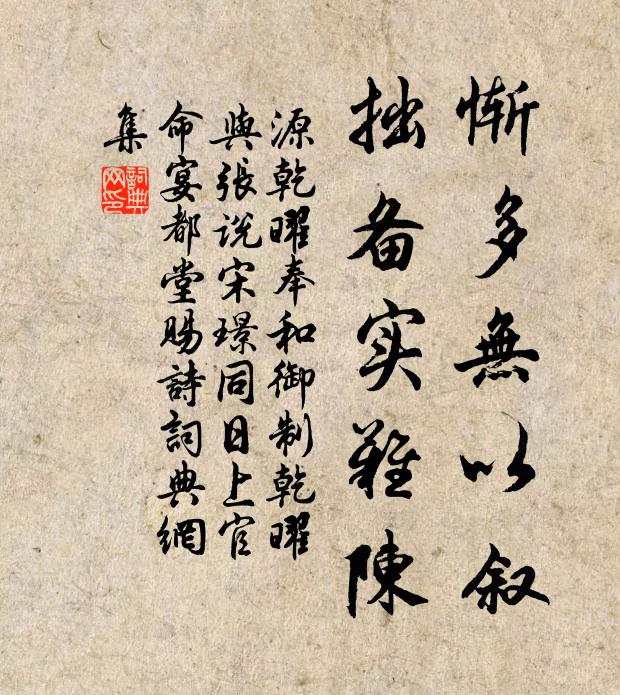 慚多無以叙
拙备实難陳
源乾曜奉和御制乾曜
與張说宋璟同日上官
命宴都堂賜詩詞典網
集
詞典
网印